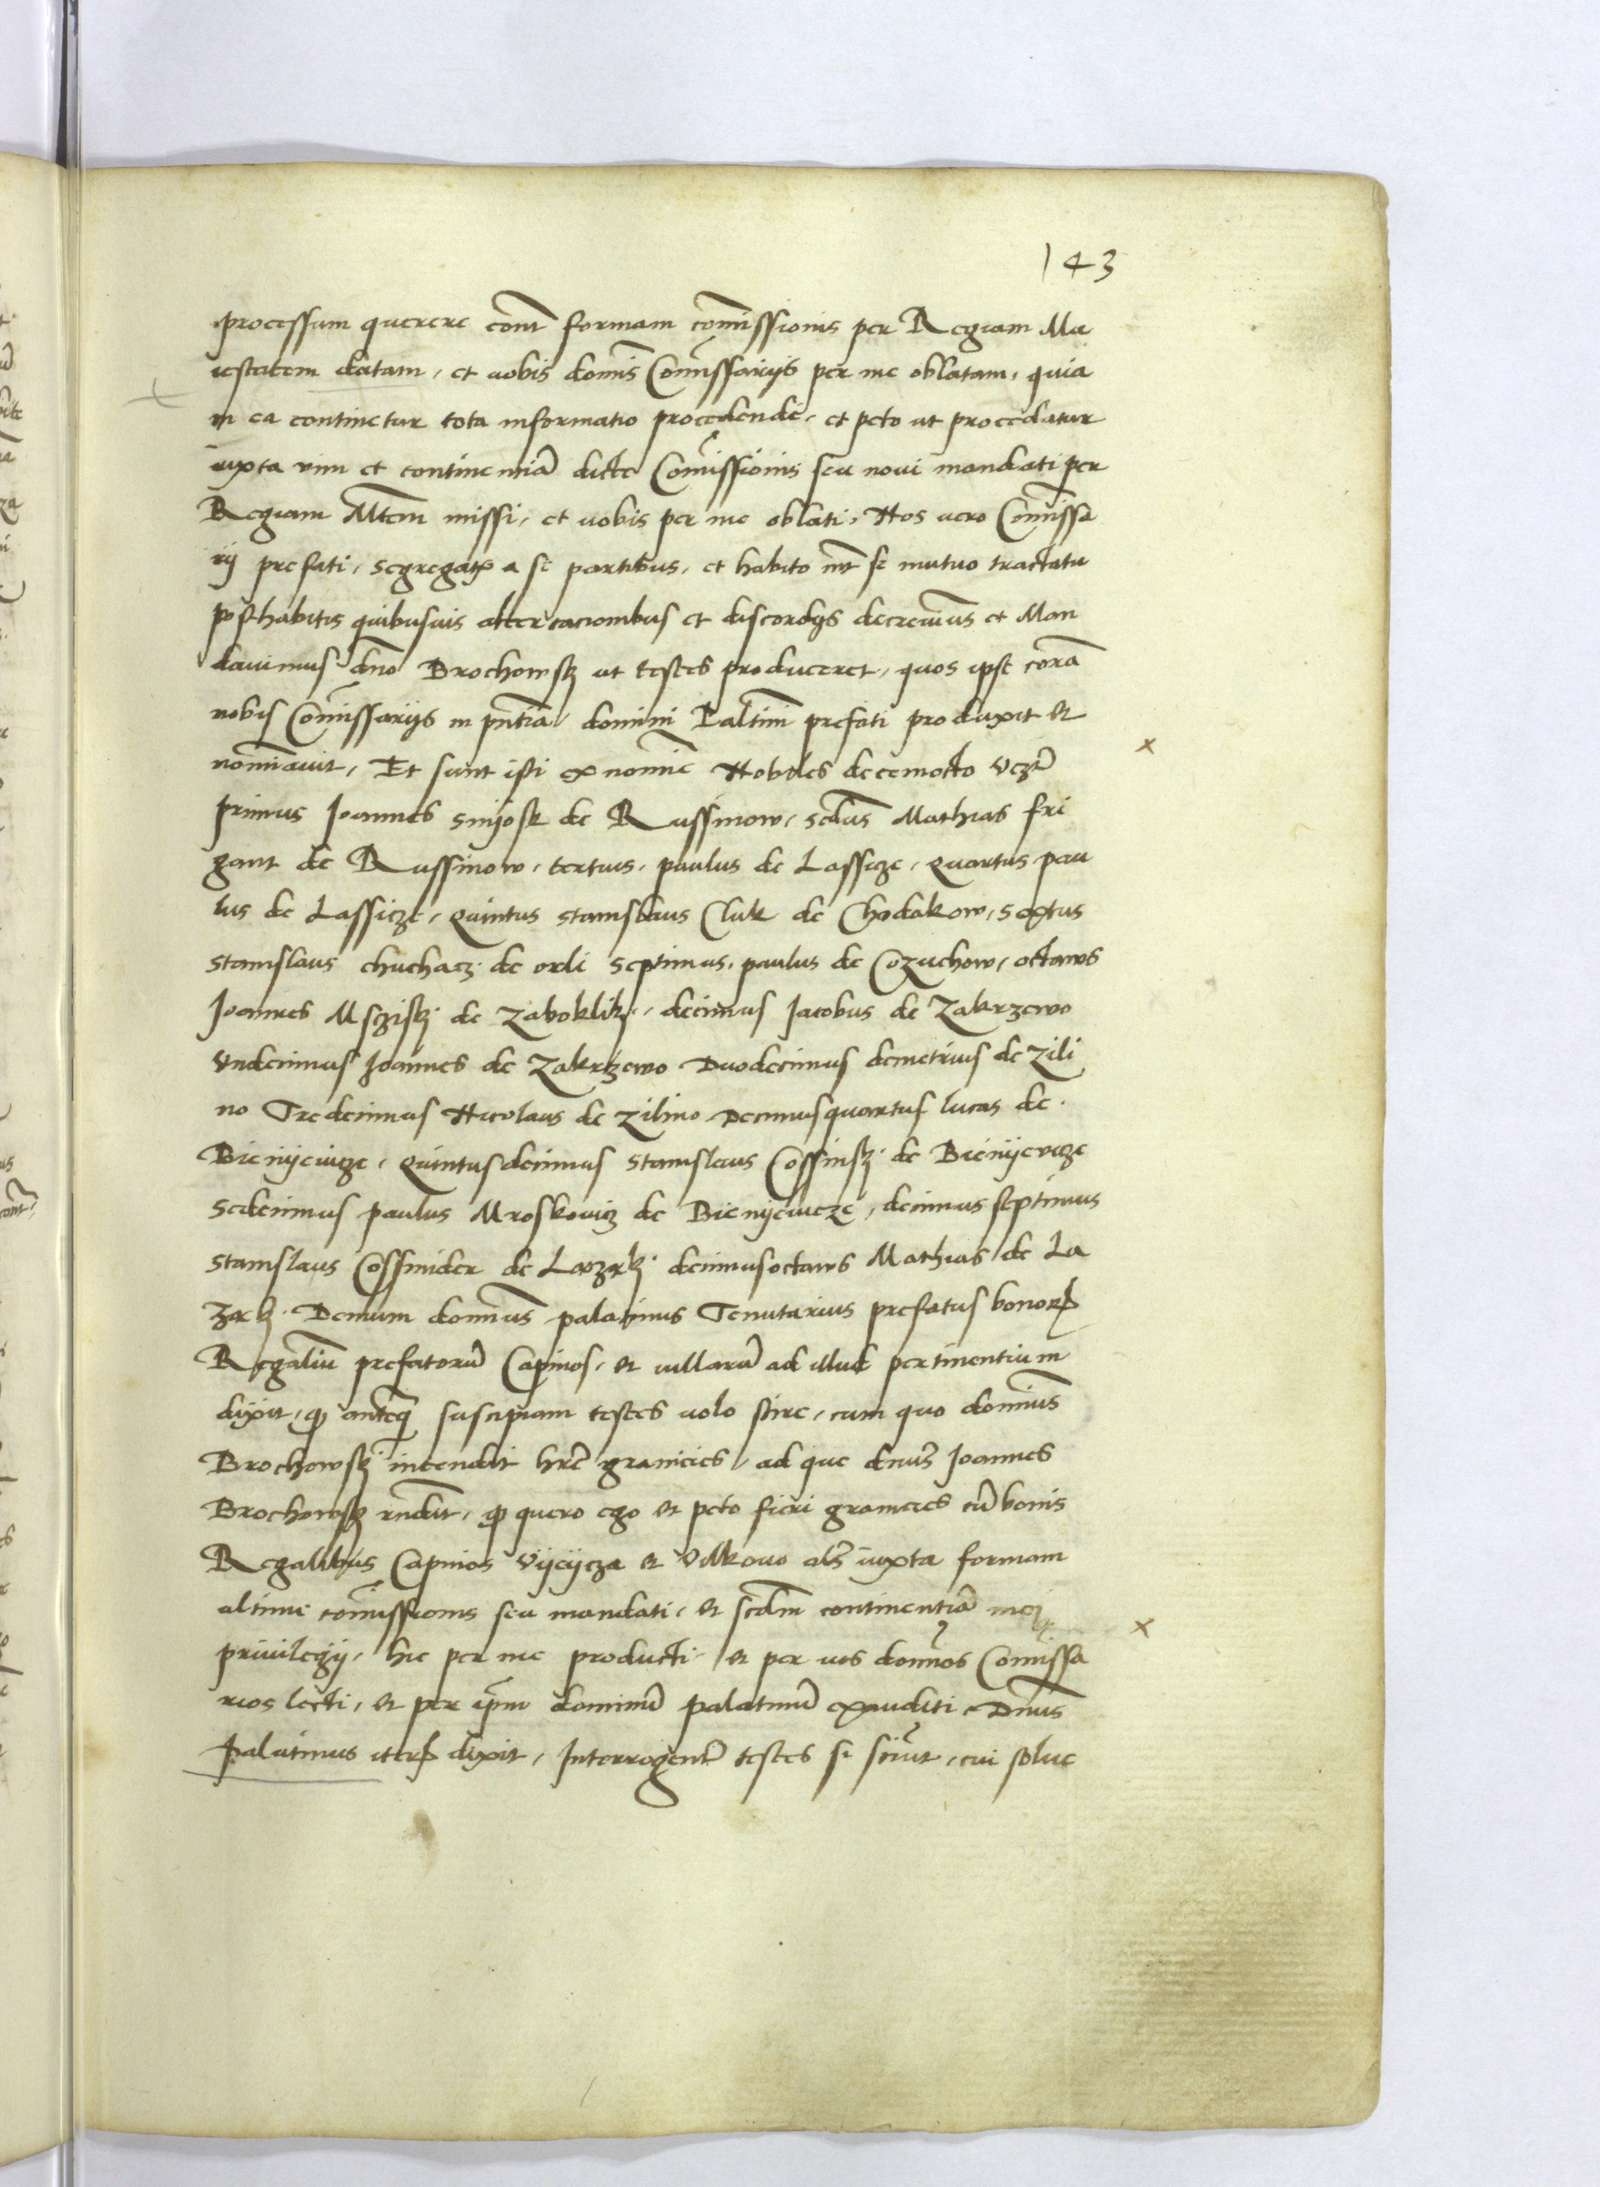 143
processum querere cont formam comissionis per Regiam Ma
iestatem datam, et vobis domis Comissarijs per me oblatam, quia
in ea continetur tota informatio procedendi, et peto ut procedatur
iuxta vim et continentiã dicte Comissionis seu novi mandati per
Regiam Mtem missi, et vobis per me oblati, Nos vero Comissa
rij prefati, segregatis a se partibus, et habito int se mutuo tractatu
posthabitis quibusvis altercacionibus et discordijs decrevimus et Man
davimus dno Brochowskj ut testes produceret, quos ipse corã
nobis Comissarijs in pntiã domini Paltini prefati produxit et
nominavit, Et sunt isti ex nomine Nobiles decemocto vczt
Primus Joannes Snijosk de Russinow, scdus Mathias fri
gant de Russinow, tertius, paulus de Lassicze, quartus pau
lus de Lassicze, quintus stanislaus Cluk de Chodakow, sextus
stanislaus chuchacz de orli septimus, paulus de Cozuchow, octavus
Joannes Mscziskj de Zaboklikj, decimus Jacobus de Zakrzewo
undecimus Joannes de Zakrzewo Duodecimus demetrius de Zili
no Tredecimus Nicolaus de Zilino Decimusquartus lucas de
Bienijewicze, quintusdecimus stanislaus Cossinskj de Bienijewicze
sedecimus paulus Mroskovicz de Bienijewicze, decimus septimus
stanislaus Cossinider de Lazarkj decimusoctavus Mathias de La
zarkj. Demum dominus palatinus Tenutarius prefatus bonor
Regaliũ prefatorũ Capinos, et villarũ ad illud pertinentium
dixit, q anteq suscipiam testes volo scire, cum quo dominus
Brochowskj intendit hre granicies, ad que dnus Joannes
Brochowskj rndit, q quero ego et peto fieri granicies cũ bonis
Regalibus Capinos Vijeijcza et Vilkowo als iuxta formam
ultime comissionis seu mandati, et scdm continentiã mei
privilegij, hic per me producti et per vos dominos Comissa
rios lecti, et per ipm dominũ palatinũ exauditi, Dnus
Palatinus iter dixit, Interrogent testes si sciunt, cui solve